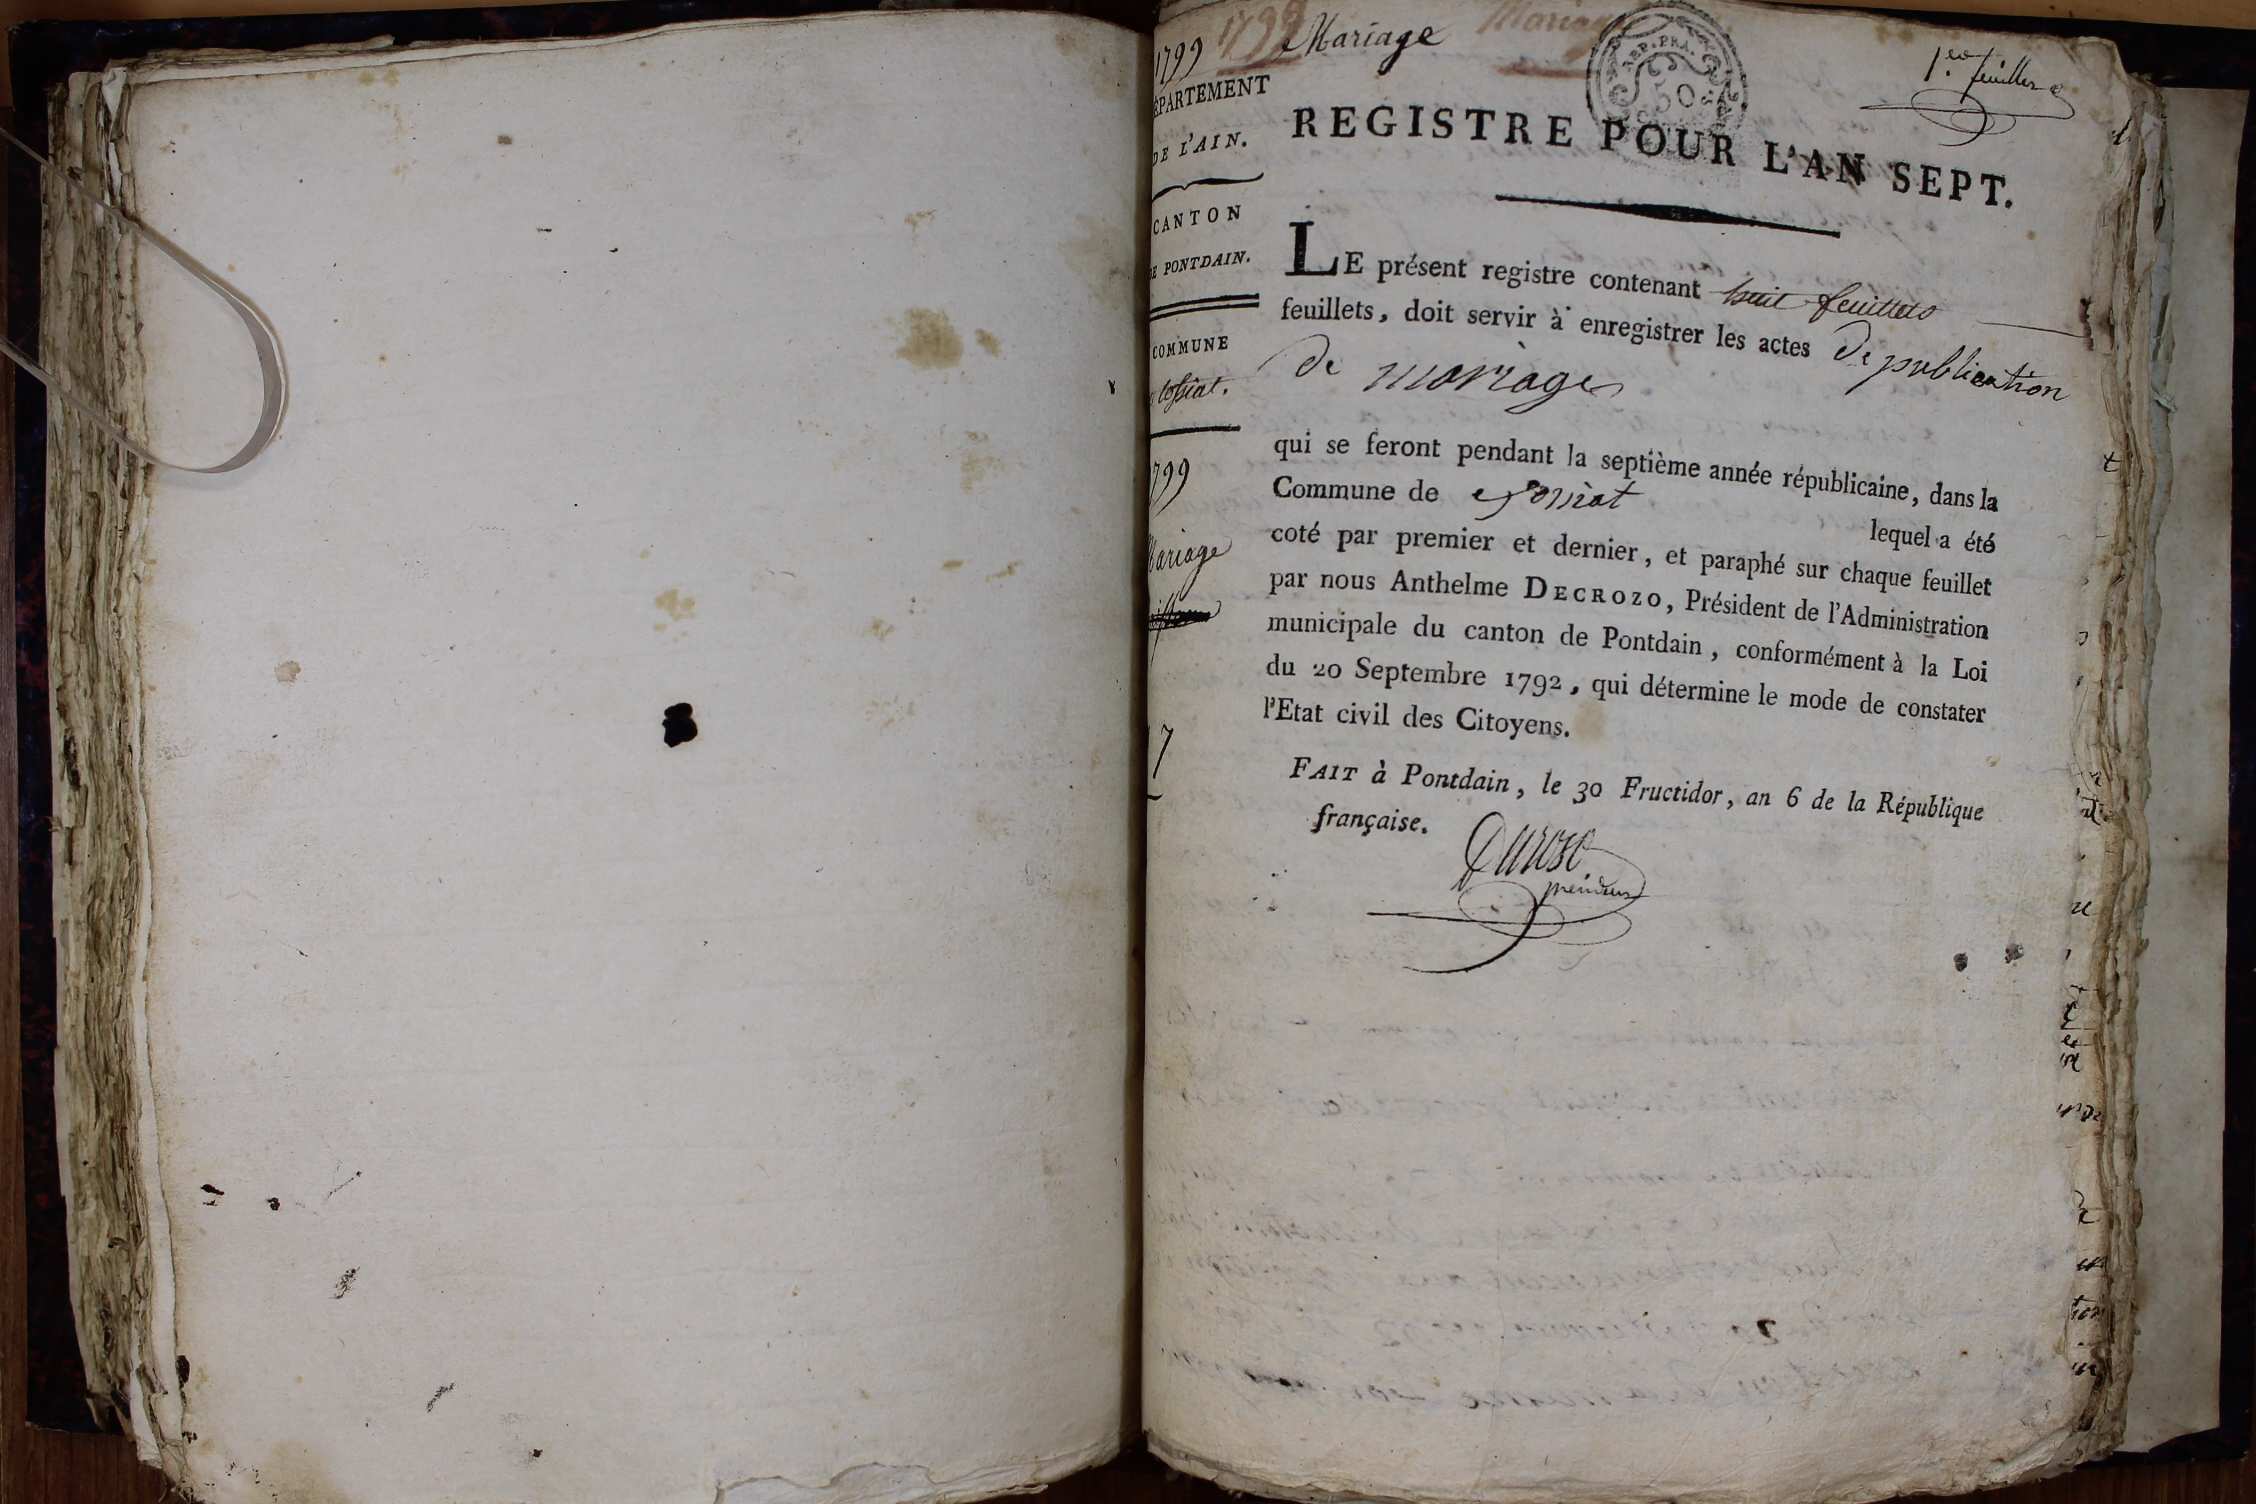 1799 1799 Mariage Mariage
1.er feuillet
REP. FRA.
50
ÉPARTEMENT
DE L'AIN.
CANTON
DE PONTDAIN.
COMMUNE
1799
Mariage
7
REGISTRE POUR L'AN SEPT.
LE présent registre contenant huit feuillets
feuillets, doit servir à enregistrer les actes de publication
de mariages
qui se feront pendant la septième année républicaine, dans la
Commune de lequel a été
coté par premier et dernier, et paraphé sur chaque feuillet
par nous Anthelme DECROZO, Président de l'Administration
municipale du canton de Pontdain, conformément à la Loi
du 20 Septembre 1792, qui détermine le mode de constater
l'Etat civil des Citoyens.
FAIT à Pontdain, le 30 Fructidor, an 6 de la République
française.